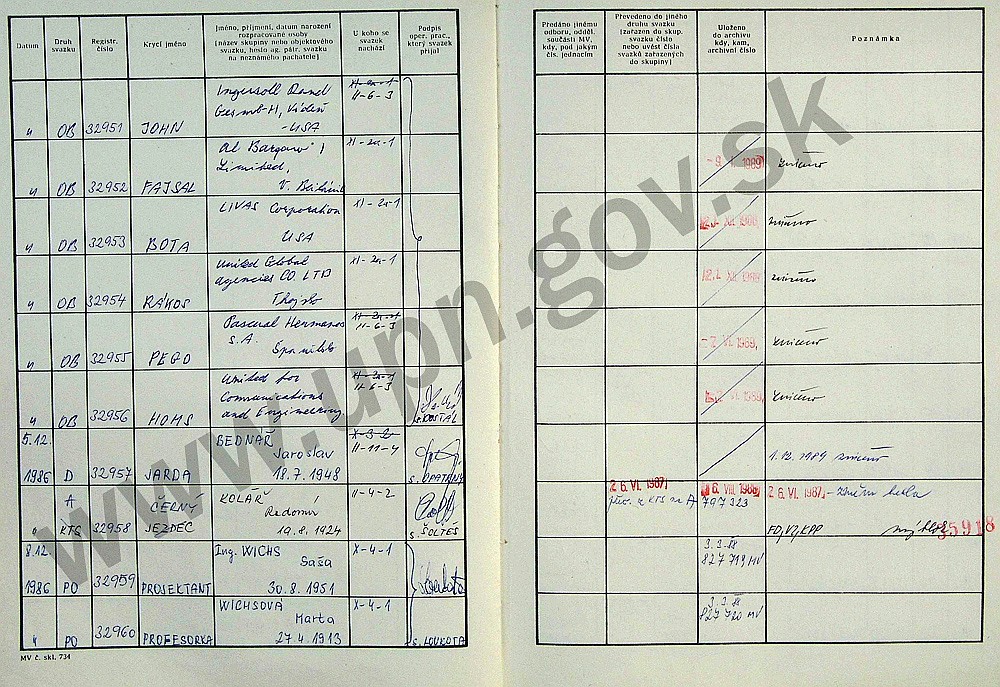 Datum
Druh svazku
Registr. číslo
Krycí jméno
Jméno, příjmení, datum narození rozpracované osoby
(název skupiny nebo objektového svazku, heslo ag. pátr. svazku na neznámého pachatele)
U koho se svazek nachází
Podpis oper. prac., který svazek přijal
Předáno jinému odboru, odděl. součásti MV, kdy, pod jakým čís. jednacím
Převedeno do jiného druhu svazku (zařazen do skup. svazku číslo nebo uvést čísla svazků zařazených do skupiny)
Uloženo do archivu kdy, kam, archivní číslo
Poznámka
" OB 32951 JOHN Ingersoll Rand
Ges mb-H, Vídeň
-USA
XI-2a-1
II-6-3
" OB 32952 FAJSAL
Limited,
XI-2a-1
1989 zničeno
" OB 32953 BOTA LIVAS Corporation
USA
XI-2a-1
zničeno
" OB 32954 RÁKOS United Global
agencies CO. LTD
XI-2a-1
zničeno
" OB 32955 PEGO Pascual Hermanos
S.A.
II-6-3
-7. VI. 1989 zničeno
" OB 32956 HOMS United for
Communications
and Engineering
XI-2a-1
II-6-3
s. DOSTÁL
VI. 1989 zničeno
5.12.
1986 D 32957 JARDA BEDNAŘ
Jaroslav
18.7.1948
X-3-2
II-11-4
s. OPATRNÝ
1.12.1989 zničeno
A
KTS 32958 ČERNÝ
JEZDEC
KOLÁŘ
Radomír
19.8.1924
II-4-2
s. ŠOLTÉS
26. VI. 1987
přev. z KTS na A
6. VIII. 1988
797323
26. VI. 1987
35918
8.12.
1986 PO 32959 PROJEKTANT Ing. WICHS
Saša
30.8.1951
X-4-1
3.3.88
827719 MV
" PO 32960 PROFESORKA WICHSOVÁ
Marta
27.4.1913
X-4-1
s. LOUKOTA
3.3.88
827720 MV
MV č. skl. 734
www.upn.gov.sk